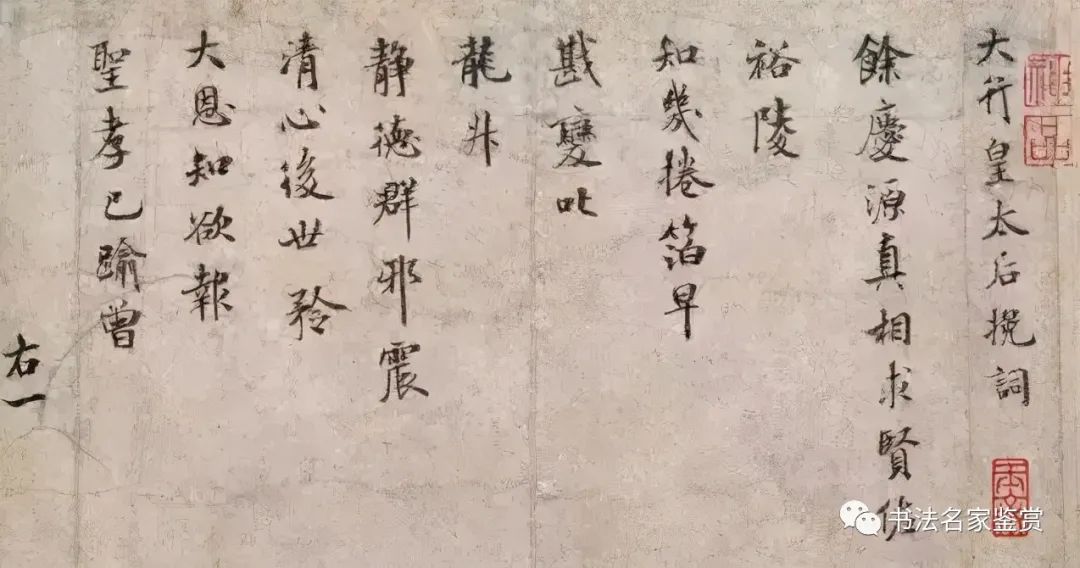 大行皇太后挽詞
餘慶源真相求賢佐
裕陵
知幾捲箔早
戡變叱
龍升
靜德群邪震
清心後世矜
大恩知欲報
聖孝已踰曾
右一
书法名家鉴赏